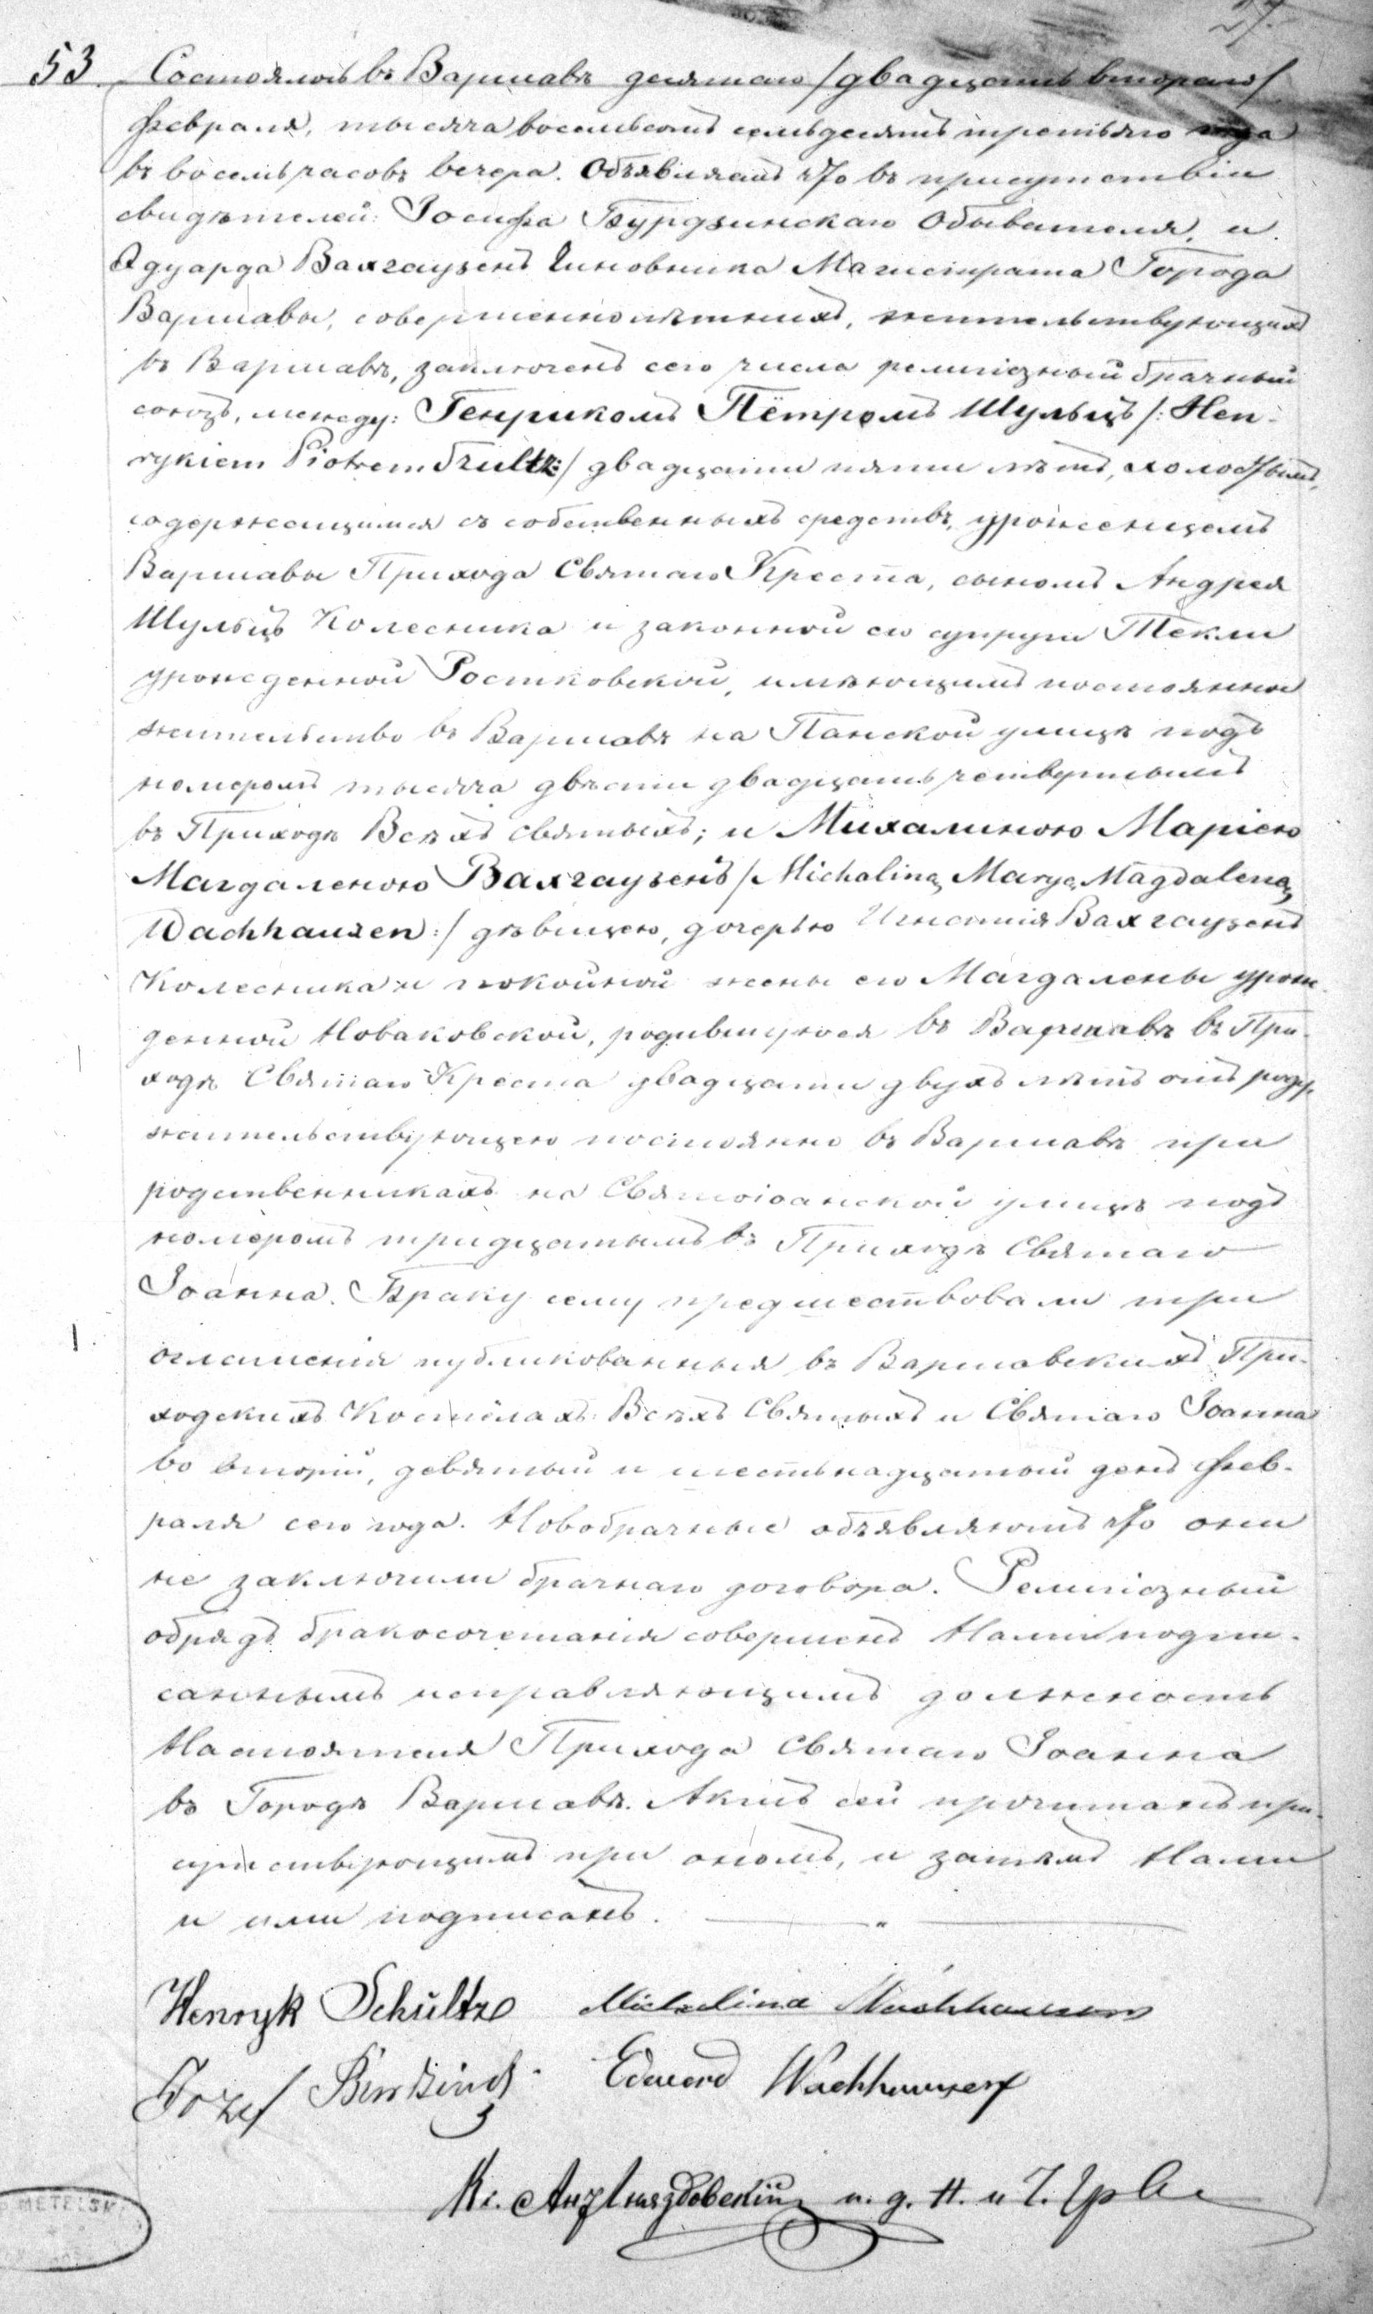 27.
53. Состоялось въ Варшавѣ десятаго /двадцать втораго/
Февраля, тысяча восемьсотъ семьдесятъ третьяго года
въ восемь часовъ вечера. Объявляемъ что въ присутствіи
свидѣтелей: Іосифа Бурдзинскаго Обывателя, и
Эдуарда Вахгаузенъ Чиновника Магистрата Города
Варшавы, совершеннолѣтнихъ, жительствующихъ
въ Варшавѣ, заключенъ сего числа религіозный брачный
союзъ, между: Генрикомъ Пётромъ Шульцъ /: Hen-
rykiem Piotrem Szultz:/ двадцати пяти лѣтъ, холостымъ,
содержащимся съ собственныхъ средствъ, уроженцемъ
Варшавы Прихода Святаго Креста, сыномъ Андрея
Шульцъ Колесника и законной его супруги Текли
урожденной Ростковской, имѣющимъ постоянное
жительство въ Варшавѣ на Панской улицѣ подъ
номеромъ тысяча двѣсти двадцать четвертымъ
въ Приходѣ Всѣхъ Святыхъ; и Михалиною Маріею
Магдаленою Вахгаузенъ /Michaliną Maryą Magdaleną
Wachhauzen:/ дѣвицею, дочерью Игнатія Вахгаузенъ
Колесника и покойной жены его Магдалены урож-
денной Новаковской, родившуюся въ Варшавѣ въ При-
ходѣ Святаго Креста двадцати двухъ лѣтъ отъ роду,
жительствующею постоянно въ Варшавѣ при
родственникахъ на Святоіоанской улицѣ подъ
номеромъ тридцатымъ въ Приходѣ Святаго
Іоанна. Браку сему предшествовали три
оглашенія публикованныя въ Варшавскихъ При-
ходскихъ Костёлахъ: Всѣхъ Святыхъ и Святаго Іоанна
во вторій, девятый и шестьнадцатый день Фев-
раля сего года. Новобрачные объявляютъ что они
не заключили брачнаго договора. Религіозный
обрядъ бракосочетанія совершенъ Нами подпи-
саннымъ исправляющимъ должность
Настоятеля Прихода Святаго Іоанна
въ Городѣ Варшавѣ. Актъ сей прочитанъ при-
сутствующимъ при ономъ, и затѣмъ Нами
и ими подписанъ.
Henryk Schultz Michalina Wachhausen
Jozef Edward Wachhausen
Кс. и. д. Н. и Ч.
METELSK